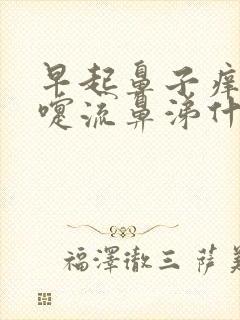 早起鼻子痒
嚏流鼻涕什
福澤徹三 萨美